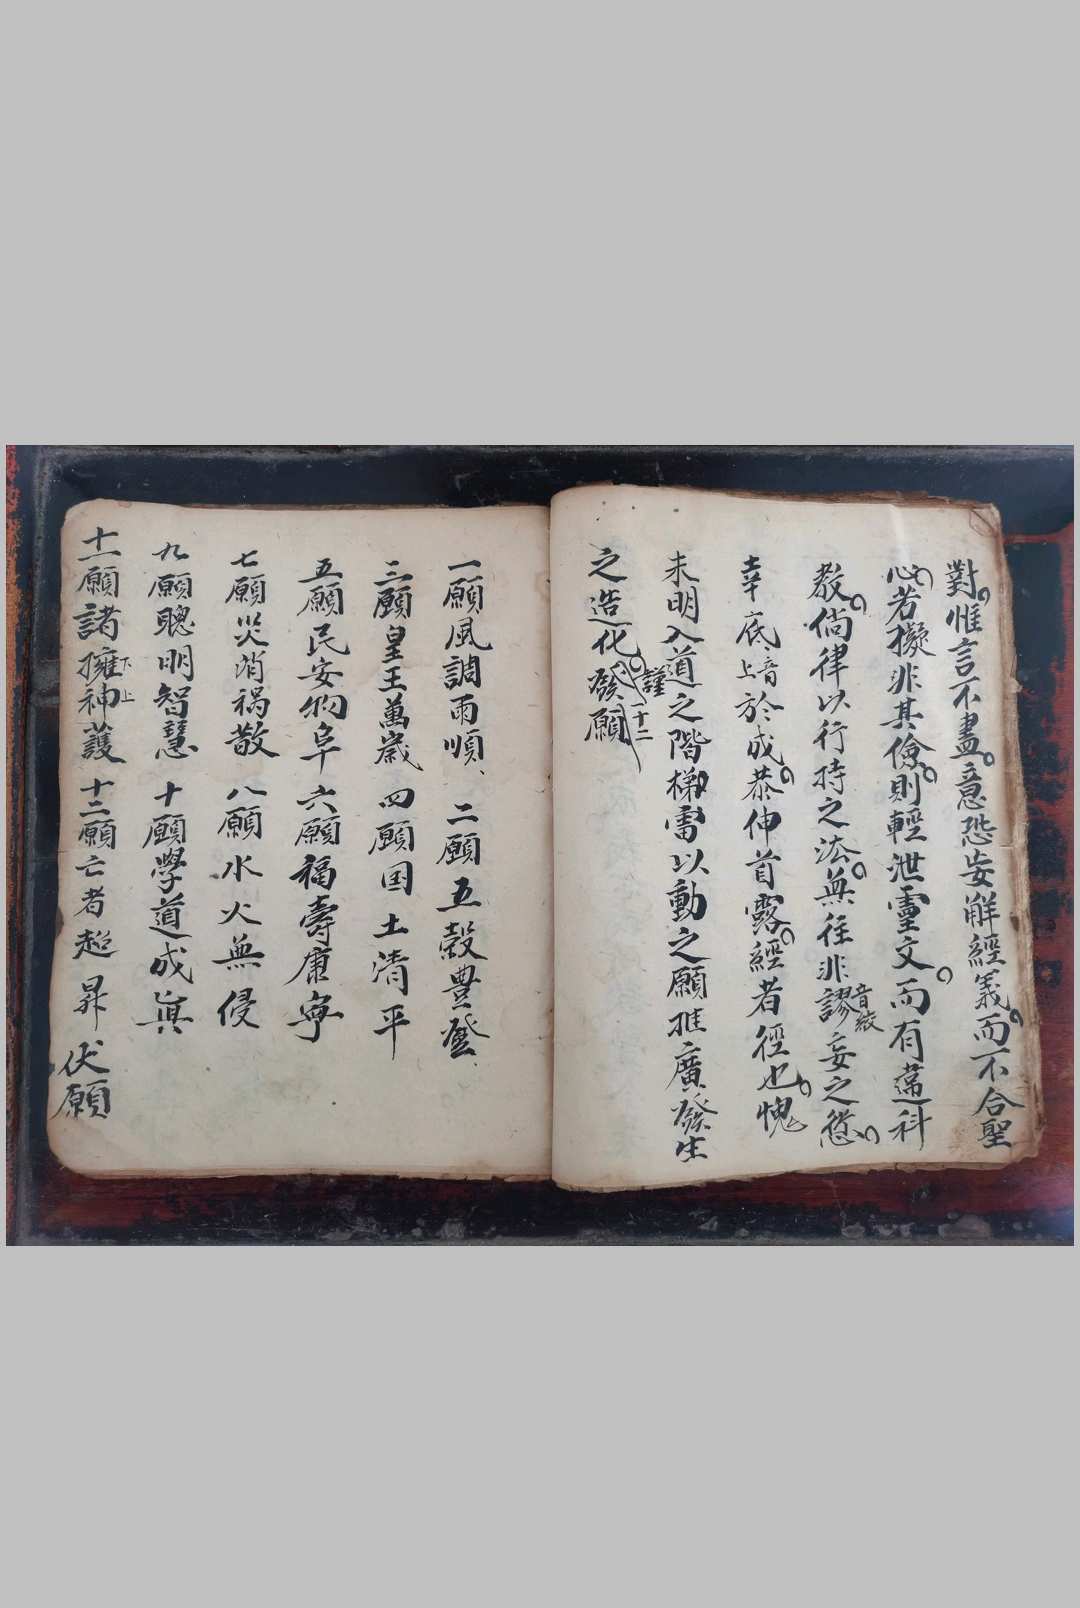 對惟言不盡意恐妄解經義而不合聖
心若擬非其儉則輕泄靈文而有違科
教倘律以行持之法無往非謬音繆妄之愆
幸底音上於成恭伸首露經者徑也愧
未明入道之階梯雷以動之願推廣發生
之造化謹發十二願
一願風調雨順 二願五穀豊登
三願皇王萬歲 四願国土清平
五願民安物阜 六願福壽康寧
七願災消禍散 八願水火無侵
九願聰明智慧 十願學道成真
十一願諸擁下神上護 十二願亡者超昇 伏願